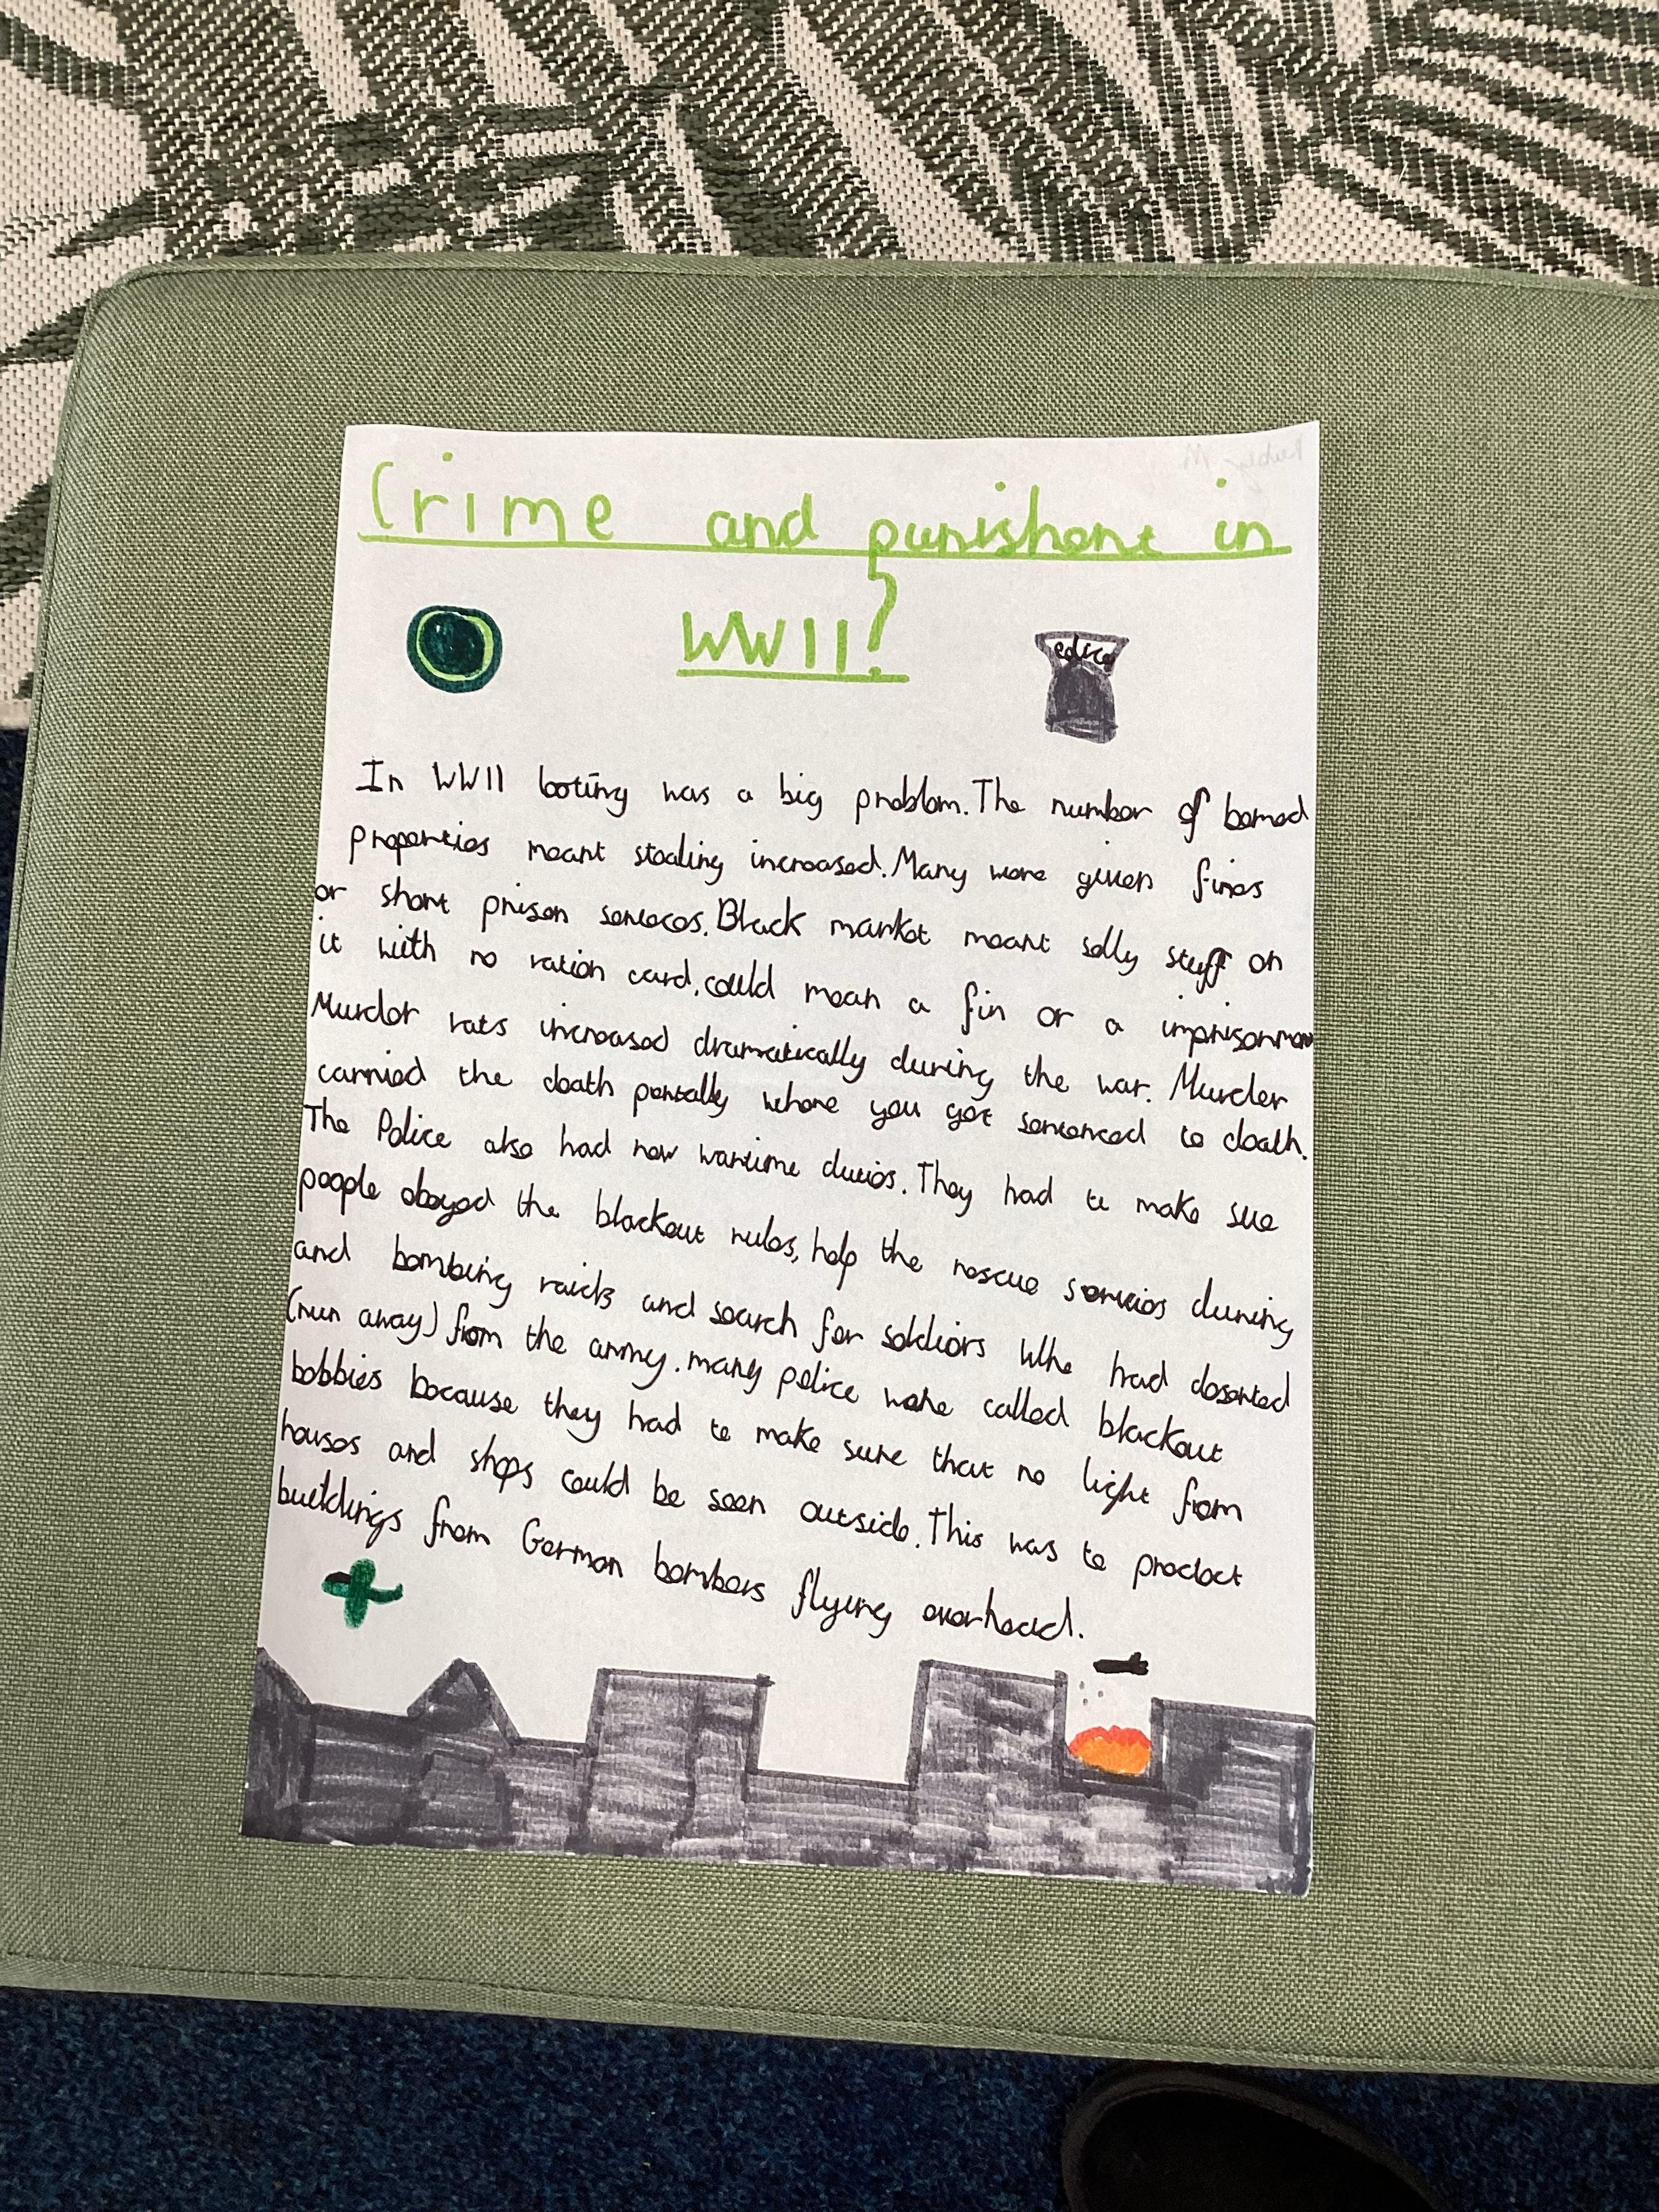 Crime and punishone in
WWII?
In WWII looting was a big problem. The number of bomed
properties meant stealing increased. Many were given fines
or short prison senteces. Black market meant selly stuff on
it with no ration card, could mean a fin or a imprisonmen
Murder rats increased dramatically during the war. Murder
carried the death pentally where you got sentenced to death.
The Police also had new wartime duties. They had to make sue
people obeyed the blackout rules, help the rescue servcies during
and bombing raids and search for soldiers who had deserted
(run away) from the army. many police were called blackout
bobbies because they had to make sure that no light from
houses and shops could be seen outside. This was to prodect
buildings from German bombers flying overhead.